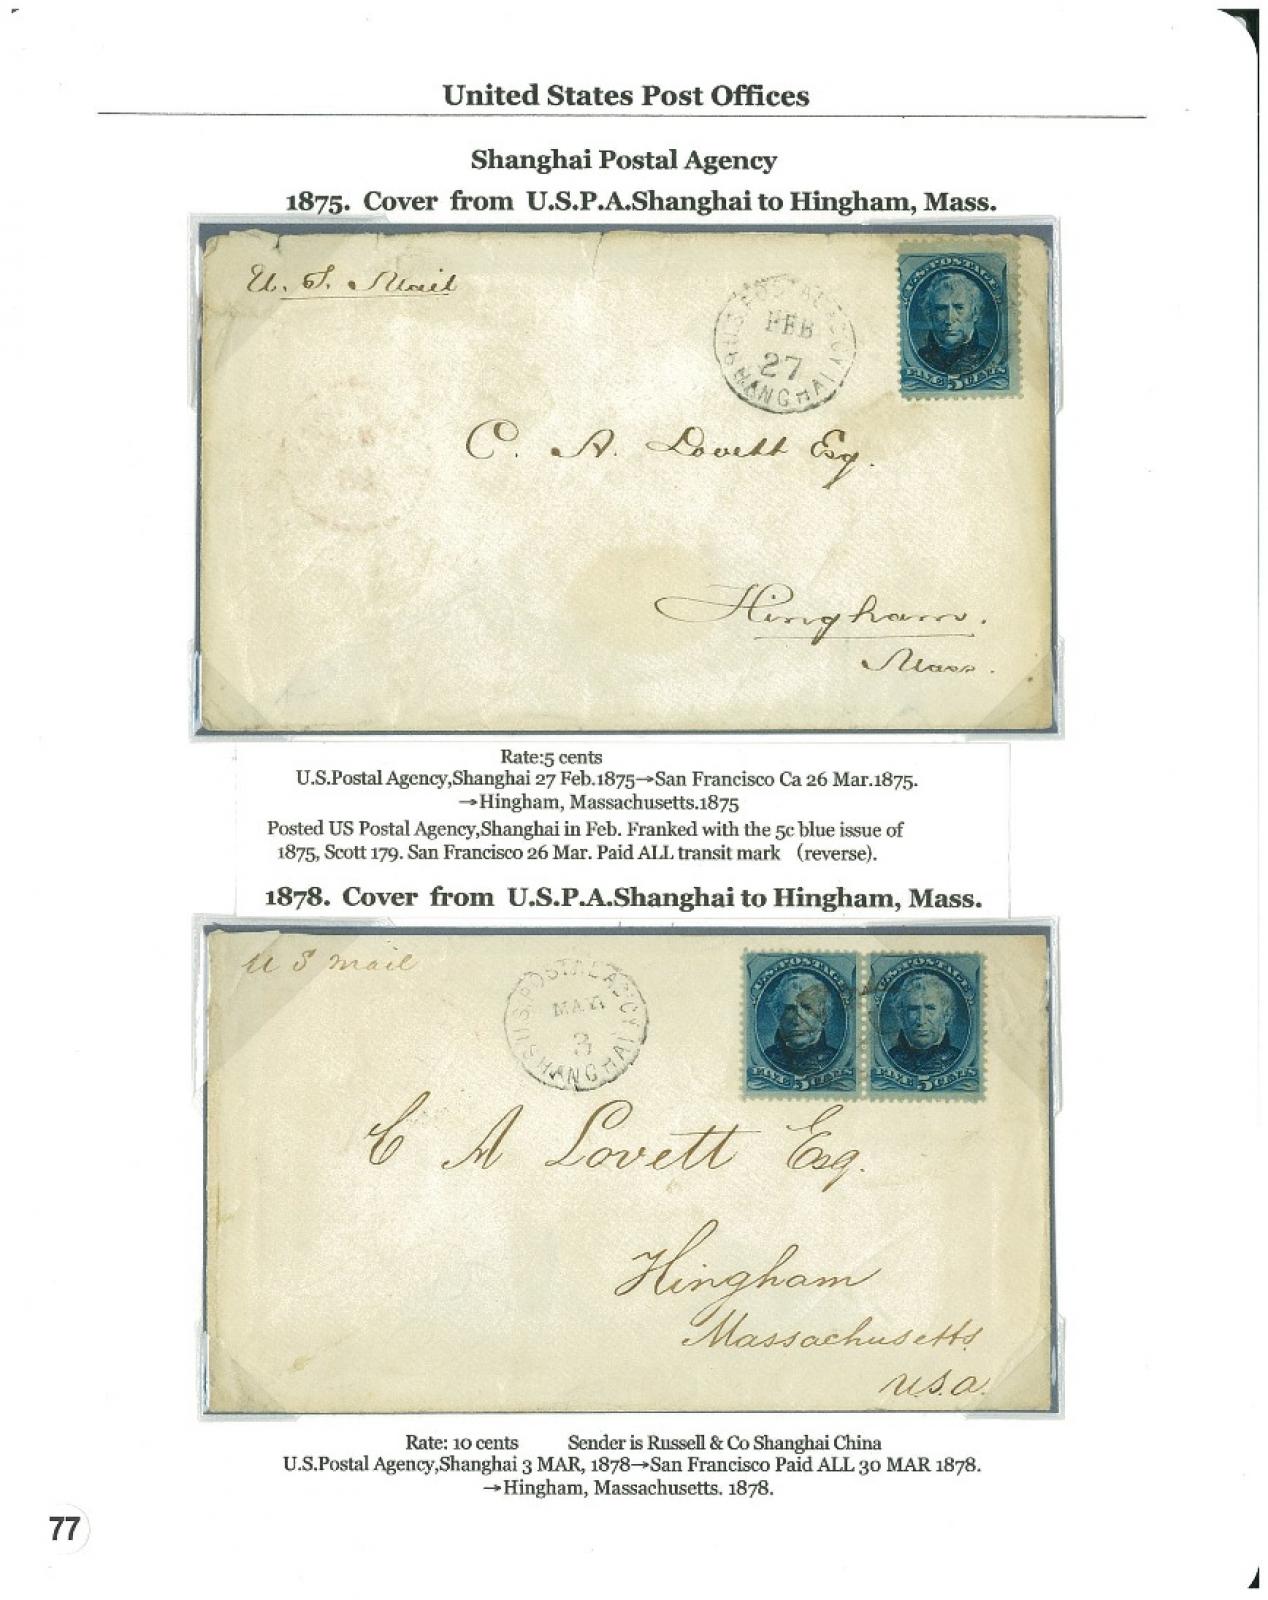 United States Post Offices
Shanghai Postal Agency
1875. Cover from U.S.P.A.Shanghai to Hingham, Mass.
U. S. Mail
U.S. POSTAL AGCY
FEB
27
SHANGHAI
U.S. POSTAGE
FIVE 5 CENTS
C. A. Lovett Esq.
Hingham.
Mass.
Rate:5 cents
U.S.Postal Agency,Shanghai 27 Feb.1875→San Francisco Ca 26 Mar.1875.
→Hingham, Massachusetts.1875
Posted US Postal Agency,Shanghai in Feb. Franked with the 5c blue issue of
1875, Scott 179. San Francisco 26 Mar. Paid ALL transit mark (reverse).
1878. Cover from U.S.P.A.Shanghai to Hingham, Mass.
U S mail
U.S. POSTAL AGCY
3
SHANGHAI
U.S. POSTAGE U.S. POSTAGE
FIVE 5 CENTS FIVE 5 CENTS
C A Lovett Esq.
Hingham
Massachusetts
U.S.a.
Rate: 10 cents Sender is Russell & Co Shanghai China
U.S.Postal Agency,Shanghai 3 MAR, 1878→San Francisco Paid ALL 30 MAR 1878.
→Hingham, Massachusetts. 1878.
77